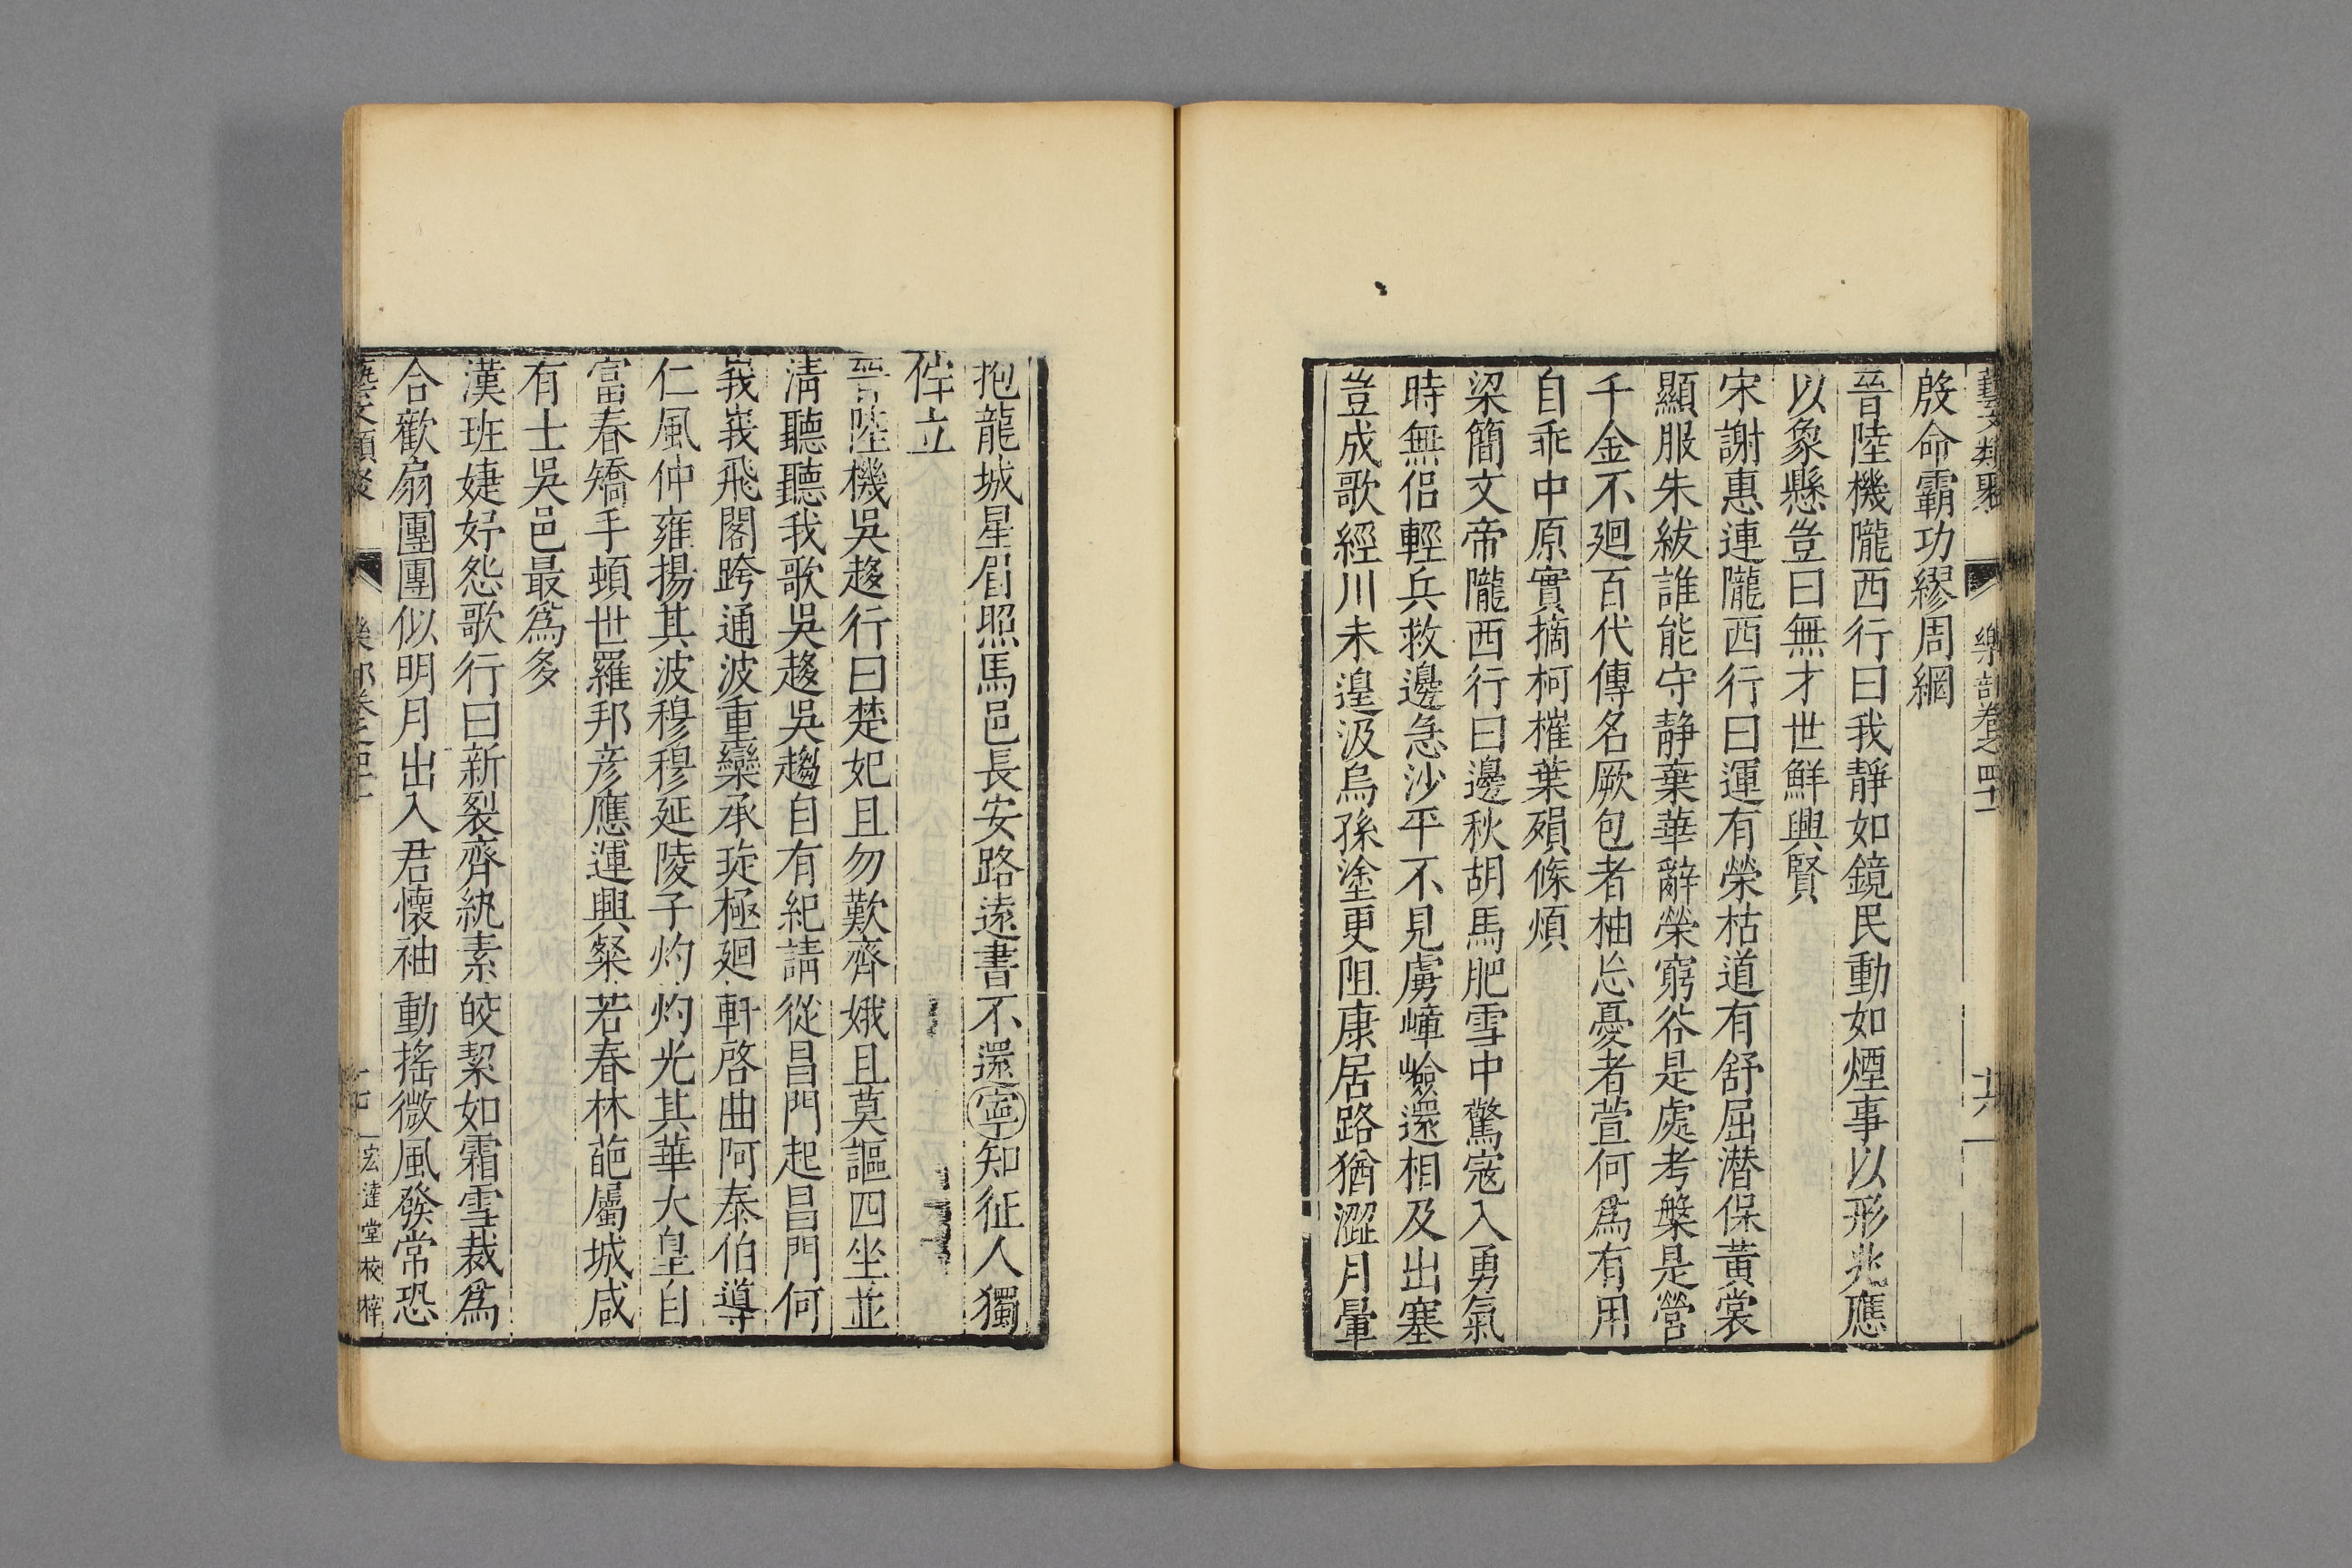 藝文類聚 樂部卷之四十一 十六
啟命霸功繆周綱
晉陸機隴西行曰我靜如鏡民動如煙事以形兆應
以象懸豈曰無才世鮮興賢
宋謝惠連隴西行曰運有榮枯道有舒屈潜保黃裳
顯服朱紱誰能守静棄華辭榮窮谷是處考槃是營
千金不廻百代傳名厥包者柚忘憂者萱何為有用
自乖中原實摘柯摧葉殞條煩
梁簡文帝隴西行曰邊秋胡馬肥雪中驚寇入勇氣
時無侣輕兵救邊急沙平不見虜嶂嶮還相及出塞
豈成歌經川未遑汲烏孫塗更阻康居路猶澀月暈
抱龍城星眉照馬邑長安路遠書不還寧知征人獨
佇立
晉陸機吳趍行曰楚妃且勿歎齊娥且莫謳四坐並
淸聽聽我歌吳趍吳趨自有紀請從昌門起昌門何
峩峩飛閣跨通波重欒承琁極廻軒啓曲阿泰伯導
仁風仲雍揚其波穆穆延陵子灼灼光其華大皇自
富春矯手頓世羅邦彦應運興粲若春林葩屬城咸
有士吳邑最為多
漢班婕妤怨歌行曰新裂齊紈素皎絜如霜雪裁為
合歡扇團團似明月出入君懷袖動搖微風發常恐
藝文類聚 樂部卷之四十一 十七 宏達堂校梓